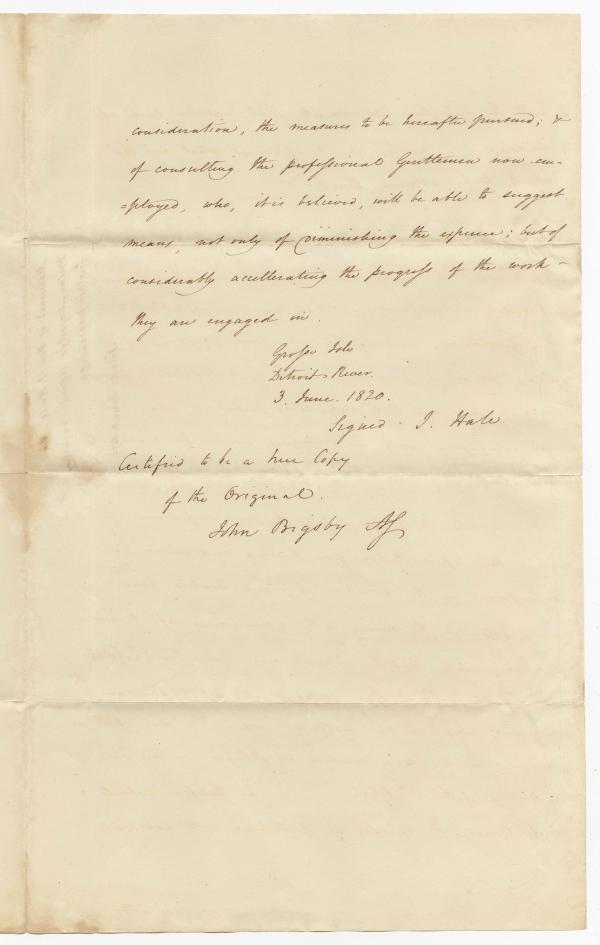 consideration, the measures to be hereafter pursued; &
of consulting the professional Gentlemen now em-
=ployed, who, it is believed, will be able to suggest
means, not only of diminishing the expence; but of
considerably accellerating the progress of the work
they are engaged in.
Grosse Isle
Detroit River.
3. June. 1820.
Signed. J. Hale
Certified to be a true Copy
of the Original.
John Bigsby